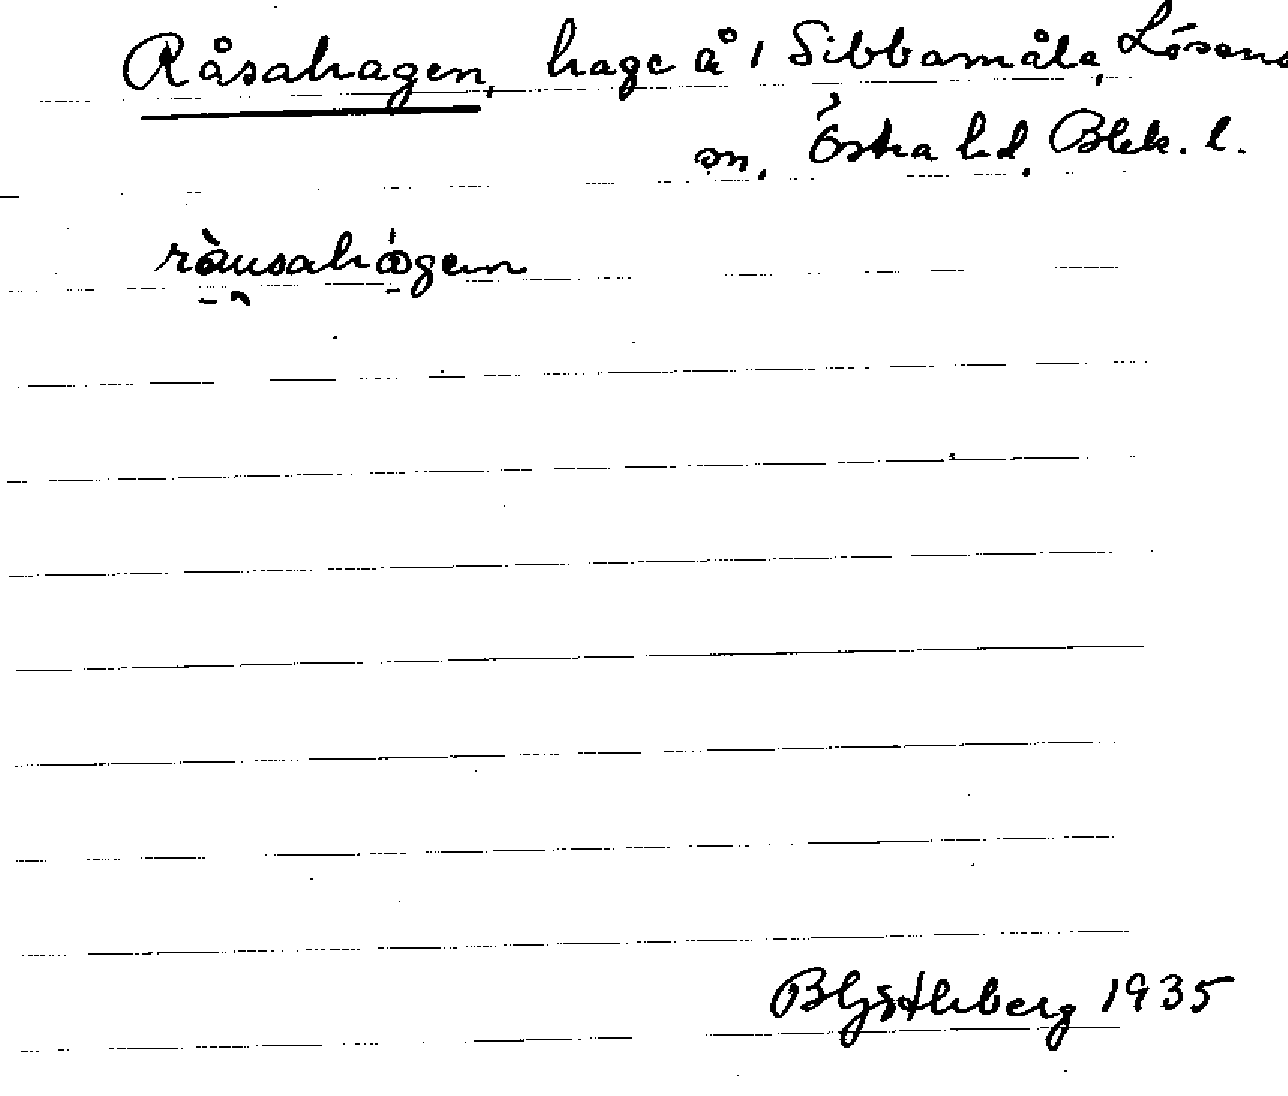 Råsahagen, hage å 1 Sibbamåla, Lösens
sn, Östra hd, Blek. l.
1935